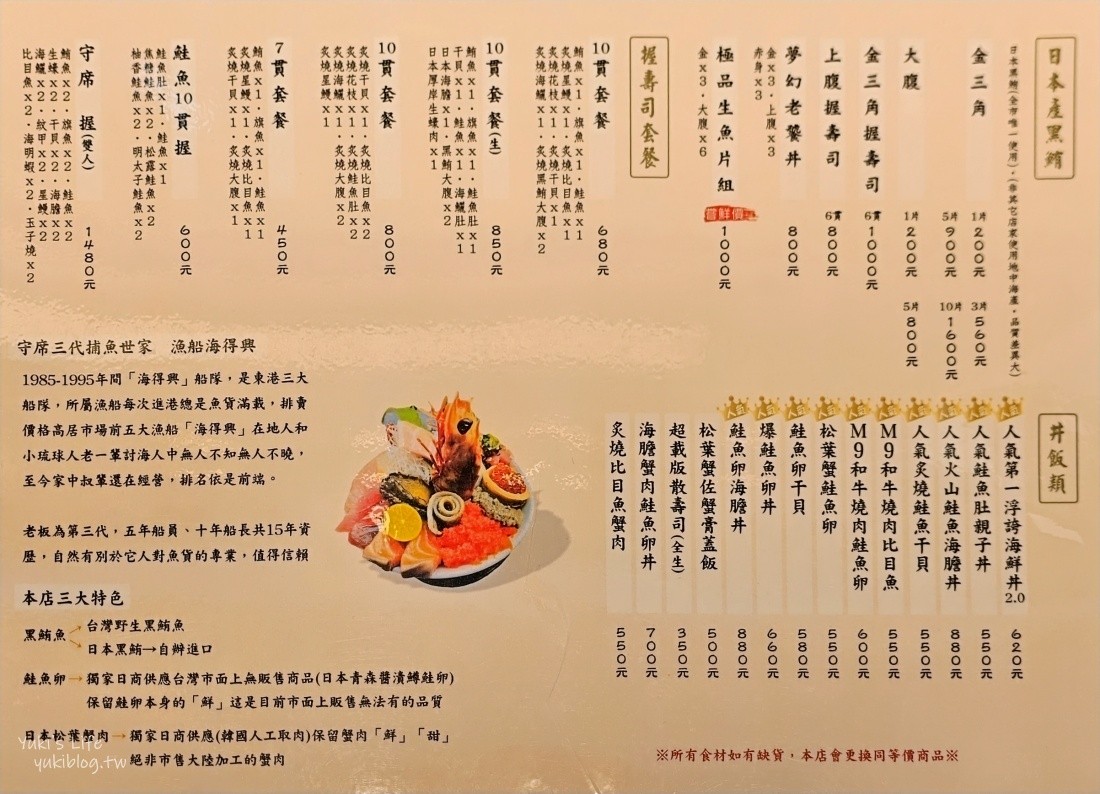 日本產黑鮪
日本黑鮪(全市唯一使用)，(非其它店家使用地中海產，品質差異大)
金三角
1片200元
3片560元
5片900元
10片1600元
大腹
1片200元
5片800元
金三角握壽司
6貫1000元
上腹握壽司
6貫800元
夢幻老饕丼
金x3．上腹x3
赤身x3
800元
極品生魚片組
金x3．大腹x6
嘗鮮價
1000元
握壽司套餐
10貫套餐
680元
鮪魚x1．旗魚x1．鮭魚肚x1
炙燒花枝x1．炙燒比目魚x1
炙燒星鰻x1．炙燒干貝x1
炙燒海鱺x1．炙燒黑鮪大腹x2
10貫套餐(生)
850元
鮪魚x1．旗魚x1．鮭魚x1
干貝x1．鮭魚x1．海鱺肚x1
日本海膽x1．黑鮪大腹x2
日本厚岸生蠔肉x1
10貫套餐
800元
炙燒干貝x1．炙燒比目魚x2
炙燒花枝x1．炙燒鮭魚肚x2
炙燒海鱺x1．炙燒大腹x2
炙燒星鰻x1
7貫套餐
450元
鮪魚x1．旗魚x1．鮭魚x1
炙燒星鰻x1．炙燒比目魚x1
炙燒干貝x1．炙燒大腹x1
鮭魚10貫握
600元
鮭魚肚x1．鮭魚x1
焦糖鮭魚x2．松露鮭魚x2
柚香鮭魚x2．明太子鮭魚x2
守席 握(雙人)
1480元
鮪魚x2．旗魚x2．鮭魚x2
生蠔x2．干貝x2．海膽x2
海鱺x2．紋甲x2．星鰻x2
比目魚x2．海明蝦x2．玉子燒x2
丼飯類
人氣第一浮誇海鮮丼2.0
620元
人氣鮭魚肚親子丼
550元
人氣火山鮭魚海膽丼
880元
人氣炙燒鮭魚干貝
550元
M9和牛燒肉比目魚
550元
M9和牛燒肉鮭魚卵
600元
松葉蟹鮭魚卵
550元
鮭魚卵干貝
580元
爆鮭魚卵丼
660元
鮭魚卵海膽丼
880元
松葉蟹佐蟹膏蓋飯
500元
超載版散壽司(全生)
350元
海膽蟹肉鮭魚卵丼
700元
炙燒比目魚蟹肉
550元
守席三代捕魚世家 漁船海得興
1985-1995年間「海得興」船隊，是東港三大
船隊，所屬漁船每次進港總是魚貨滿載，排賣
價格高居市場前五大漁船「海得興」在地人和
小琉球人老一輩討海人中無人不知無人不曉，
至今家中叔輩還在經營，排名依是前端。
老板為第三代，五年船員、十年船長共15年資
歷，自然有別於它人對魚貨的專業，值得信賴
本店三大特色
黑鮪魚
台灣野生黑鮪魚
日本黑鮪→自辦進口
鮭魚卵→獨家日商供應台灣市面上無販售商品(日本青森醬漬鱒鮭卵)
保留鮭卵本身的「鮮」這是目前市面上販售無法有的品質
日本松葉蟹肉→獨家日商供應(韓國人工取肉)保留蟹肉「鮮」「甜」
絕非市售大陸加工的蟹肉
※所有食材如有缺貨，本店會更換同等價商品※
Yuki's Life
yukiblog.tw